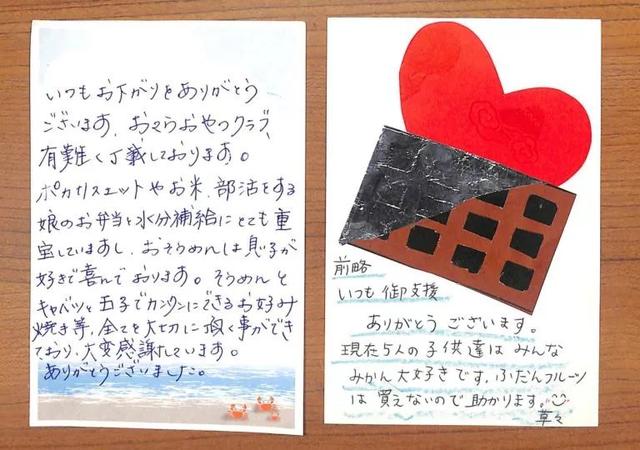 いつもお下がりをありがとう
ございます。おてらおやつクラブ、
有難く頂戴しております。
ポカリスエットやお米、部活をする
娘のお弁当と水分補給にとても重
宝していますし、おそうめんは息子が
好きで喜んでおります。そうめんと
キャベツと玉子でカンタンにできるお好み
焼き等、全てを大切に頂く事ができ
ており、大変感謝しています。
ありがとうございました。
前略
いつも御支援
ありがとうございます。
現在5人の子供達はみんな
みかん大好きです。ふだんフルーツ
は買えないので助かります。
草々